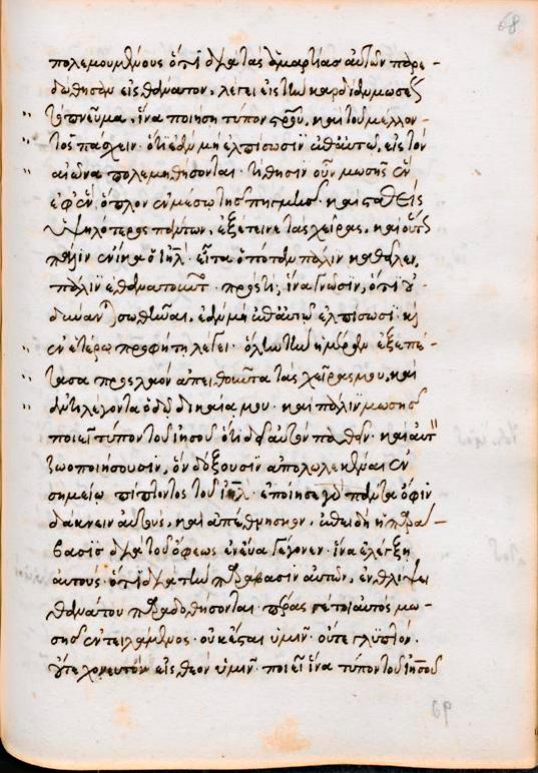 πολεμουμένους ὅτι διὰ τὰς ἁμαρτίας αὐτῶν παρε-
δόθησαν εἰς θάνατον, λέγει εἰς τὴν καρδίαν μωσέως
τὸ πνεῦμα, ἵνα ποιήση τύπον σταυροῦ, καὶ τοῦ μέλλον-
τος πάσχειν· ὅτι ἐὰν μὴ ἐλπίσωσιν ἐπ᾽ αὐτῷ, εἰς τὸν
αἰῶνα πολεμηθήσονται· τίθησιν οὖν μωσῆς ἓν
ἐφ᾽ ἓν ὅπλον ἐν μέσω τῆς πηγμῆς· καὶ σταθεὶς
ὑψηλότερος πάντων, ἐξέτεινε τὰς χεῖρας, καὶ οὕτως
πάλιν ἐνίκα ὁ ἰηλ· εἶτα ὁπόταν πάλιν καθεῖλε,
πάλιν ἐθανατοῦντο· πρὸς τί; ἵνα γνῶσιν, ὅτι οὐ
δύνανται σωθῆναι, ἐὰν μὴ ἐπ᾽ αὐτῷ ἐλπίσωσι· κὶ
ἐν ἑτέρω προφήτη λέγει· ὅλην τὴν ἡμέραν ἐξεπέ-
τασα πρὸς λαὸν ἀπειθοῦντα τὰς χεῖρας μου, καὶ
ἀντιλέγοντα ὁδῷ δικαία μου· καὶ πάλιν μωσῆς
ποιεῖ τύπον τοῦ ἰησοῦ ὅτι δεῖ αὐτὸν παθεῖν· καὶ αὐτὸς
ζωοποιήσουσιν, ὃν δόξουσιν ἀπολωλεκέναι ἐν
σημείω πίπτοντος τοῦ ἰηλ· ἐποίησε γὰρ πάντα ὄφιν
δάκνειν αὐτοὺς, καὶ ἀπέθνησκον, ἐπειδὴ ἡ παρά-
βασις διὰ τοῦ ὄφεως ἐν εὔα γέγονεν· ἵνα ἐλέγξη
αὐτοὺς· ὅτι διὰ τὴν παράβασιν αὐτῶν, ἐν θλίψει
θανάτου παραδοθήσονται· πέρας γέ τοι αὐτὸς μω-
σῆς ἐντειλάμενος· οὐκ ἔσται ὑμῖν· οὔτε γλυπτόν·
οὔτε χονευτὸν εἰς θεὸν ὑμῖν· ποιεῖ ἵνα τύπον τοῦ ἰησοῦ
68
69